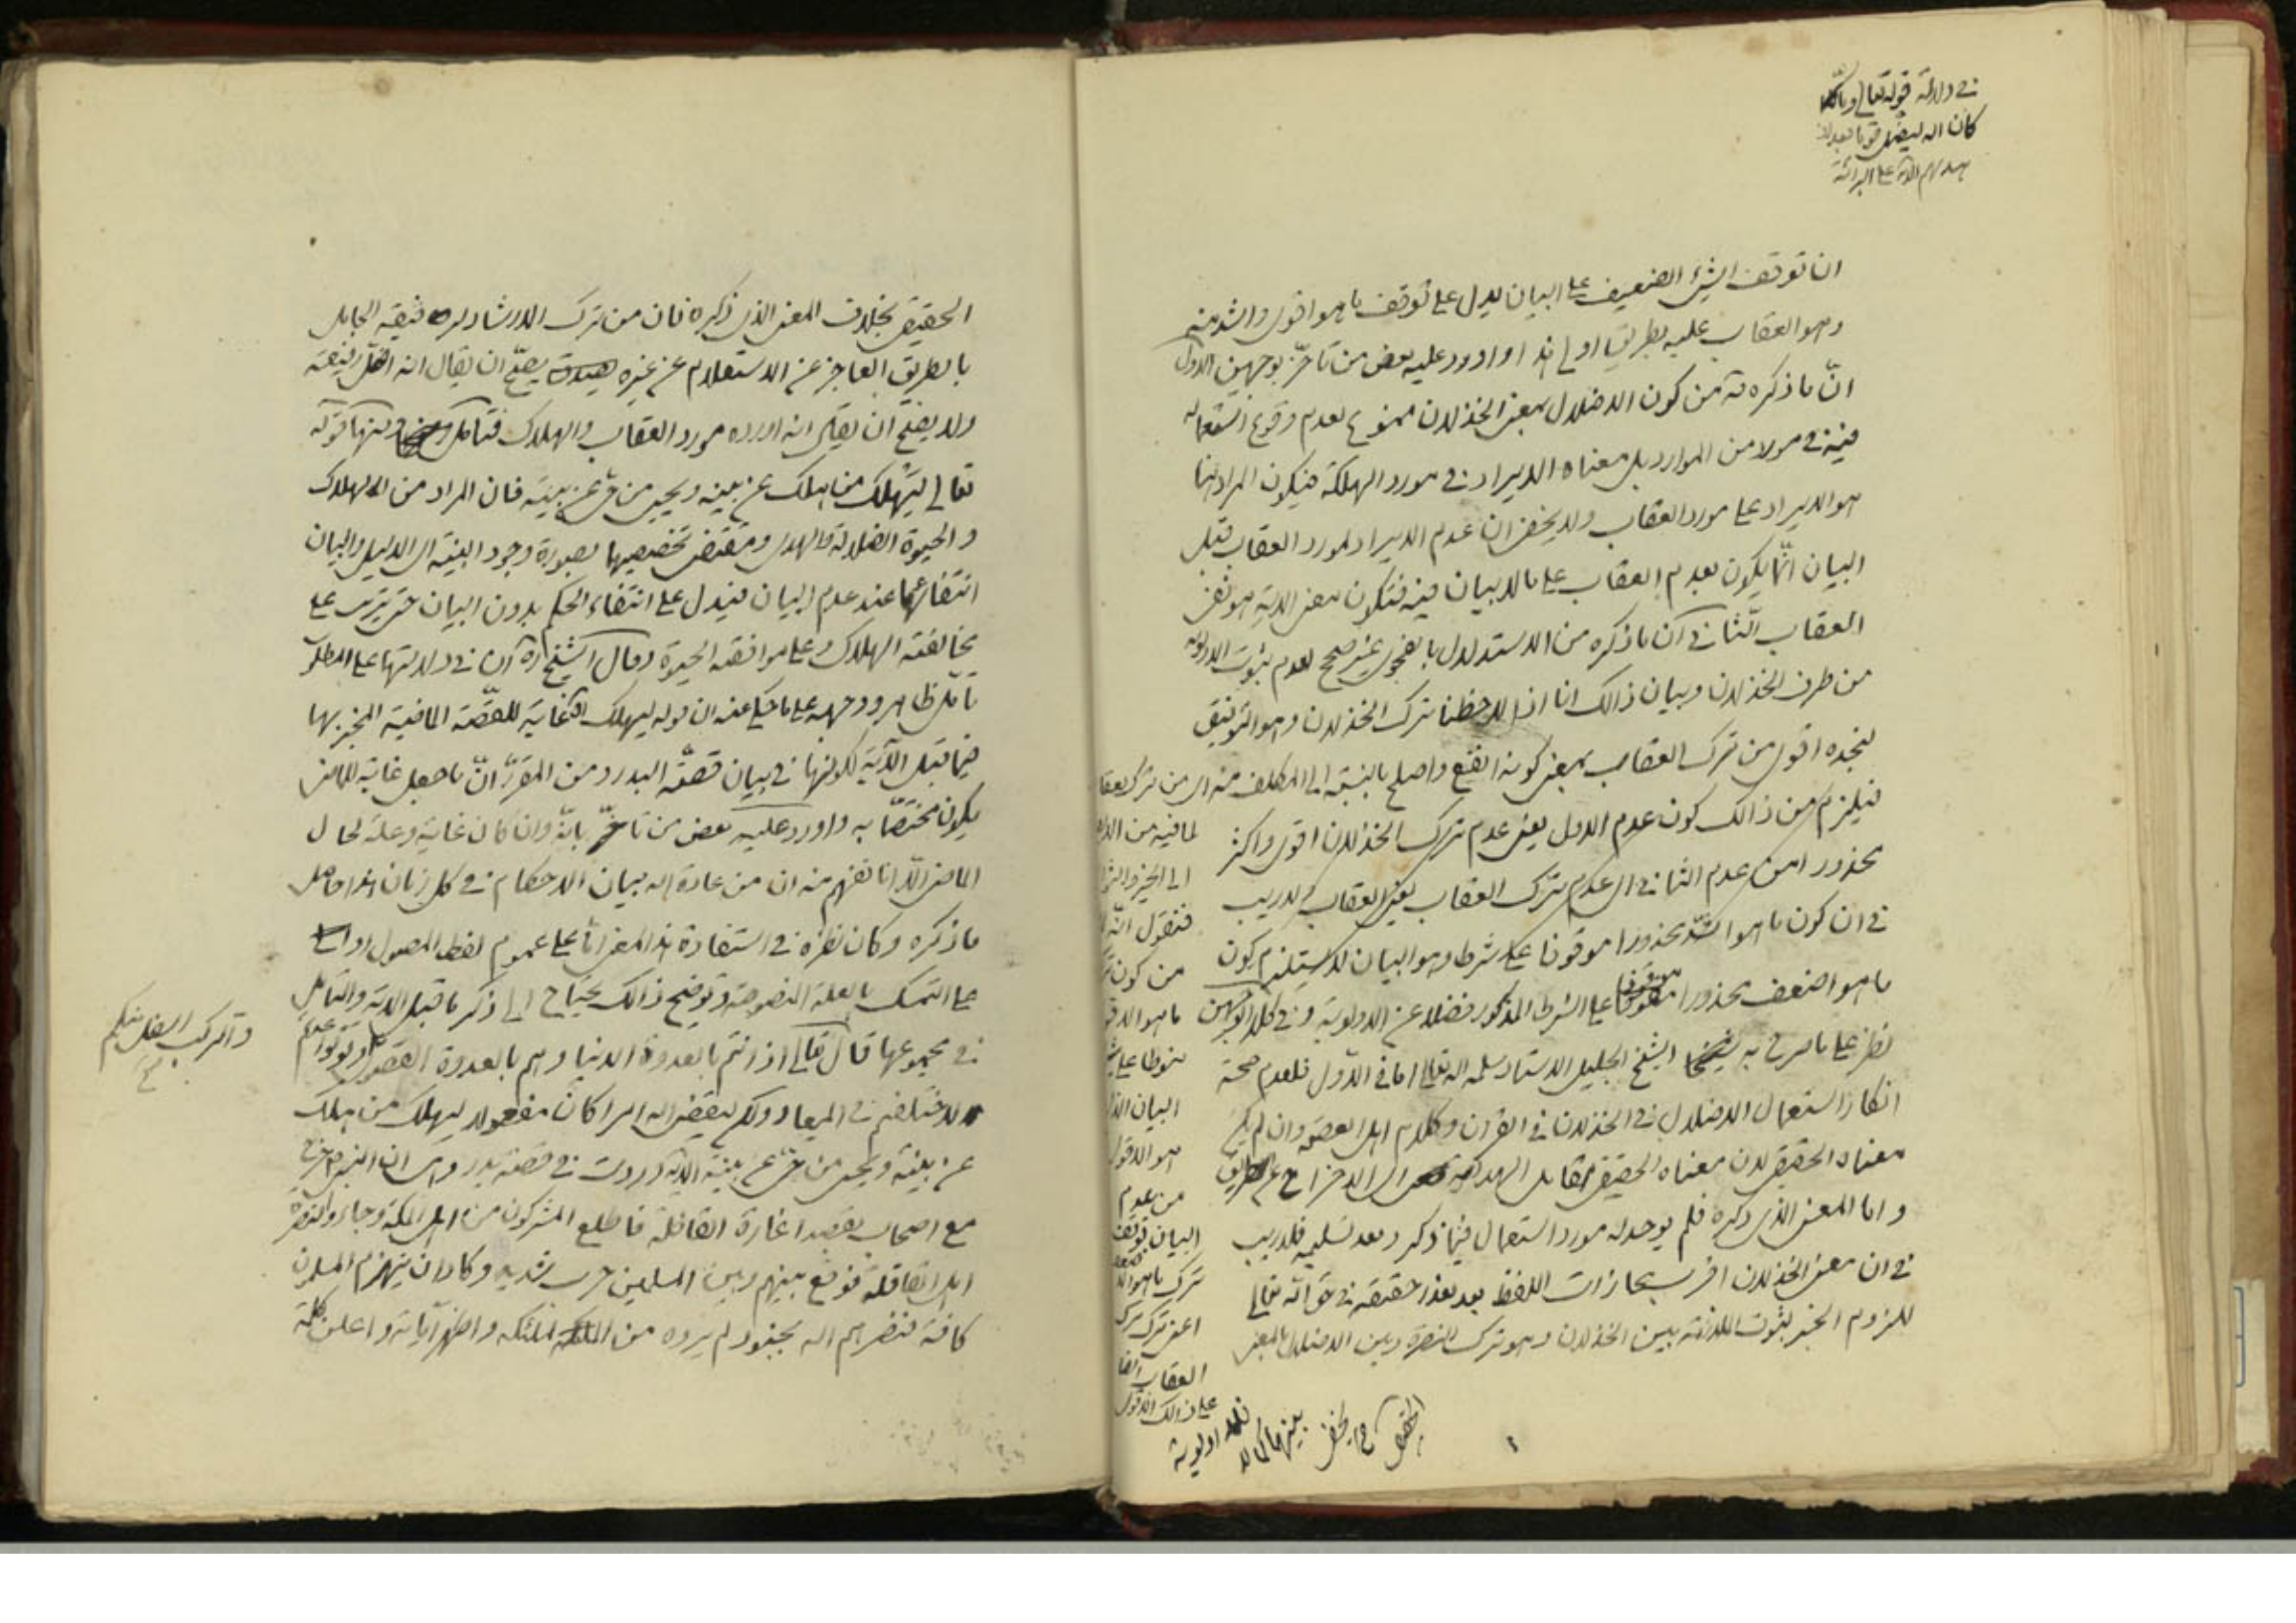 في دلالة قوله تعالى وما
كان الله ليضل قوما بعد اذ
هديهم الاية على البرائة
ان توقف الشيئ الضعيف على البيان يدل على توقف ما هو اقوى واشد منه
وهو العقاب عليه بطريق اولى هذا واورد عليه بعض من تاخر بوجهين الاول
انّ ما ذكره من كون الاضلال بمعنى الخذلان ممنوع لعدم وقوع استعماله
فيه في مورد من الموارد بل معناه الايراد في مورد الهلكة فيكون المراد هنا
هو الايراد على مورد العقاب ولا يخفى ان عدم الايراد لمورد العقاب قبل
البيان انّما يكون بعدم العقاب على ما لا بيان فيه فتكون معنى الاية هو نفى
العقاب الثاني ان ما ذكره من الاستدلال بالفحوى غير صحيح لعدم ثبوت الاولوية
من طرف الخذلان وبيان ذالك انا اذا لاحظنا ترك الخذلان وهو التوفيق
لنجده اقوى من ترك العقاب بمعنى كونه انفع واصلح بالنسبة الى المكلف منه اى من ترك العقاب
فيلزم من ذالك كون عدم الاول يعنى عدم ترك الخذلان اقوى واكثر
محذورا من عدم الثاني اى عدم ترك العقاب يعنى العقاب ولا ريب
في ان كون ما هو اشدّ محذورا موقوفا على شرط وهو البيان لا يستلزم كون
ما هو اضعف محذورا موقوفا على الشرط المذكور فضلا عن الاولوية وفي كلا الوجهين
نظر على ما صرح به شيخنا الشيخ الجليل الاستاد سلمه الله تعالى اما في الاول فلعدم صحة
انكار استعمال الاضلال في الخذلان في القران وكلام اهل العصمة وان لم يكن
معناه الحقيقى لان معناه الحقيقى مقابل الهداية اى الاخراج عن الطريق
و اما المعنى الذى ذكره فلم يوجد له مورد استعمال فيما ذكر وبعد تسليمه فلا ريب
في ان معنى الخذلان اقرب مجازات اللفظ بعد تعذر حقيقة في حق الله تعالى
للزوم الجبر لثبوت الملازمة بين الخذلان وهو ترك النصرة وبين الاضلال بالمعنى
لما فيه من
الى الخير
فنقول انّه
من كون
ما هو
منوطا على
البيان
هو الاقوى
من عدم
البيان توقف
ترك ما هو
اعنى ترك ترك
العقاب ايضا
على ذالك الاقوى
فلا اولوية
بينهما كما لا
يخفى
الحقيقى
الحقيقى بخلاف المعنى الذى ذكره فان من ترك الارشاد لرفيقه الجاهل
بالطريق العاجز عن الاستعلام عن غيره يصحّ ان يقال انه اضلّ رفيقه
ولا يصحّ ان يقال انه اورده مورد العقاب والهلاك فتامل ومنها قوله
تعالى ليهلك من هلك عن بينة ويحيى من حىّ عن بينة فان المراد من الهلاك
والحيوة الضلالة والهدى ومقتضى تخصيصهما بصورة وجود البينة اى الدليل والبيان
انتفائهما عند عدم البيان فيدل على انتفاء الحكم بدون البيان حتى يترتب على
مخالفته الهلاك وعلى موافقته الحيوة وقال الشيخ ره ان في دلالتها على المطلوب
تأمّل ظاهر ووجهه على ما حكى عنه ان قوله ليهلك غاية للقصّة الماضية المخبر بها
فيما قبل الآية لكونها في بيان قصة البدر ومن المقرّر انّ ما جعل غاية للماضى
يكون مختصّا به واورد عليه بعض من تاخّر بانّه وان كان غاية وعلة لحال
الماضى الّا انا نفهم منه ان من عادة الله بيان الاحكام في كل زمان هذا حاصل
ما ذكره وكان نظره في استفادة هذا المعنى امّا على عموم لفظ الموصول او
على التمسك بالعلة المنصوصة وتوضيح ذالك يحتاج الى ذكر ما قبل الاية والتامل
في مجموعها قال تعالى اذ انتم بالعدوة الدنيا وهم بالعدوة القصوى ولو تواعدتم
لاختلفتم في الميعاد ولكن ليقضى الله امرا كان مفعولا ليهلك من هلك
عن بينة ويحيى من حىّ عن بينة الاية وردت في قصة بدر
مع اصحابه بقصد اغارة القافلة فاطلع المشركون من اهل المكة وجاؤا لنصرة
اهل القافلة فوقع بينهم وبين المسلمين حرب شديد وكاد ان ينهزم المسلمون
كافة فنصرهم الله بجنود لم يروه من الملئكه واظهر آياته واعلن كلمته
والركب اسفل منكم